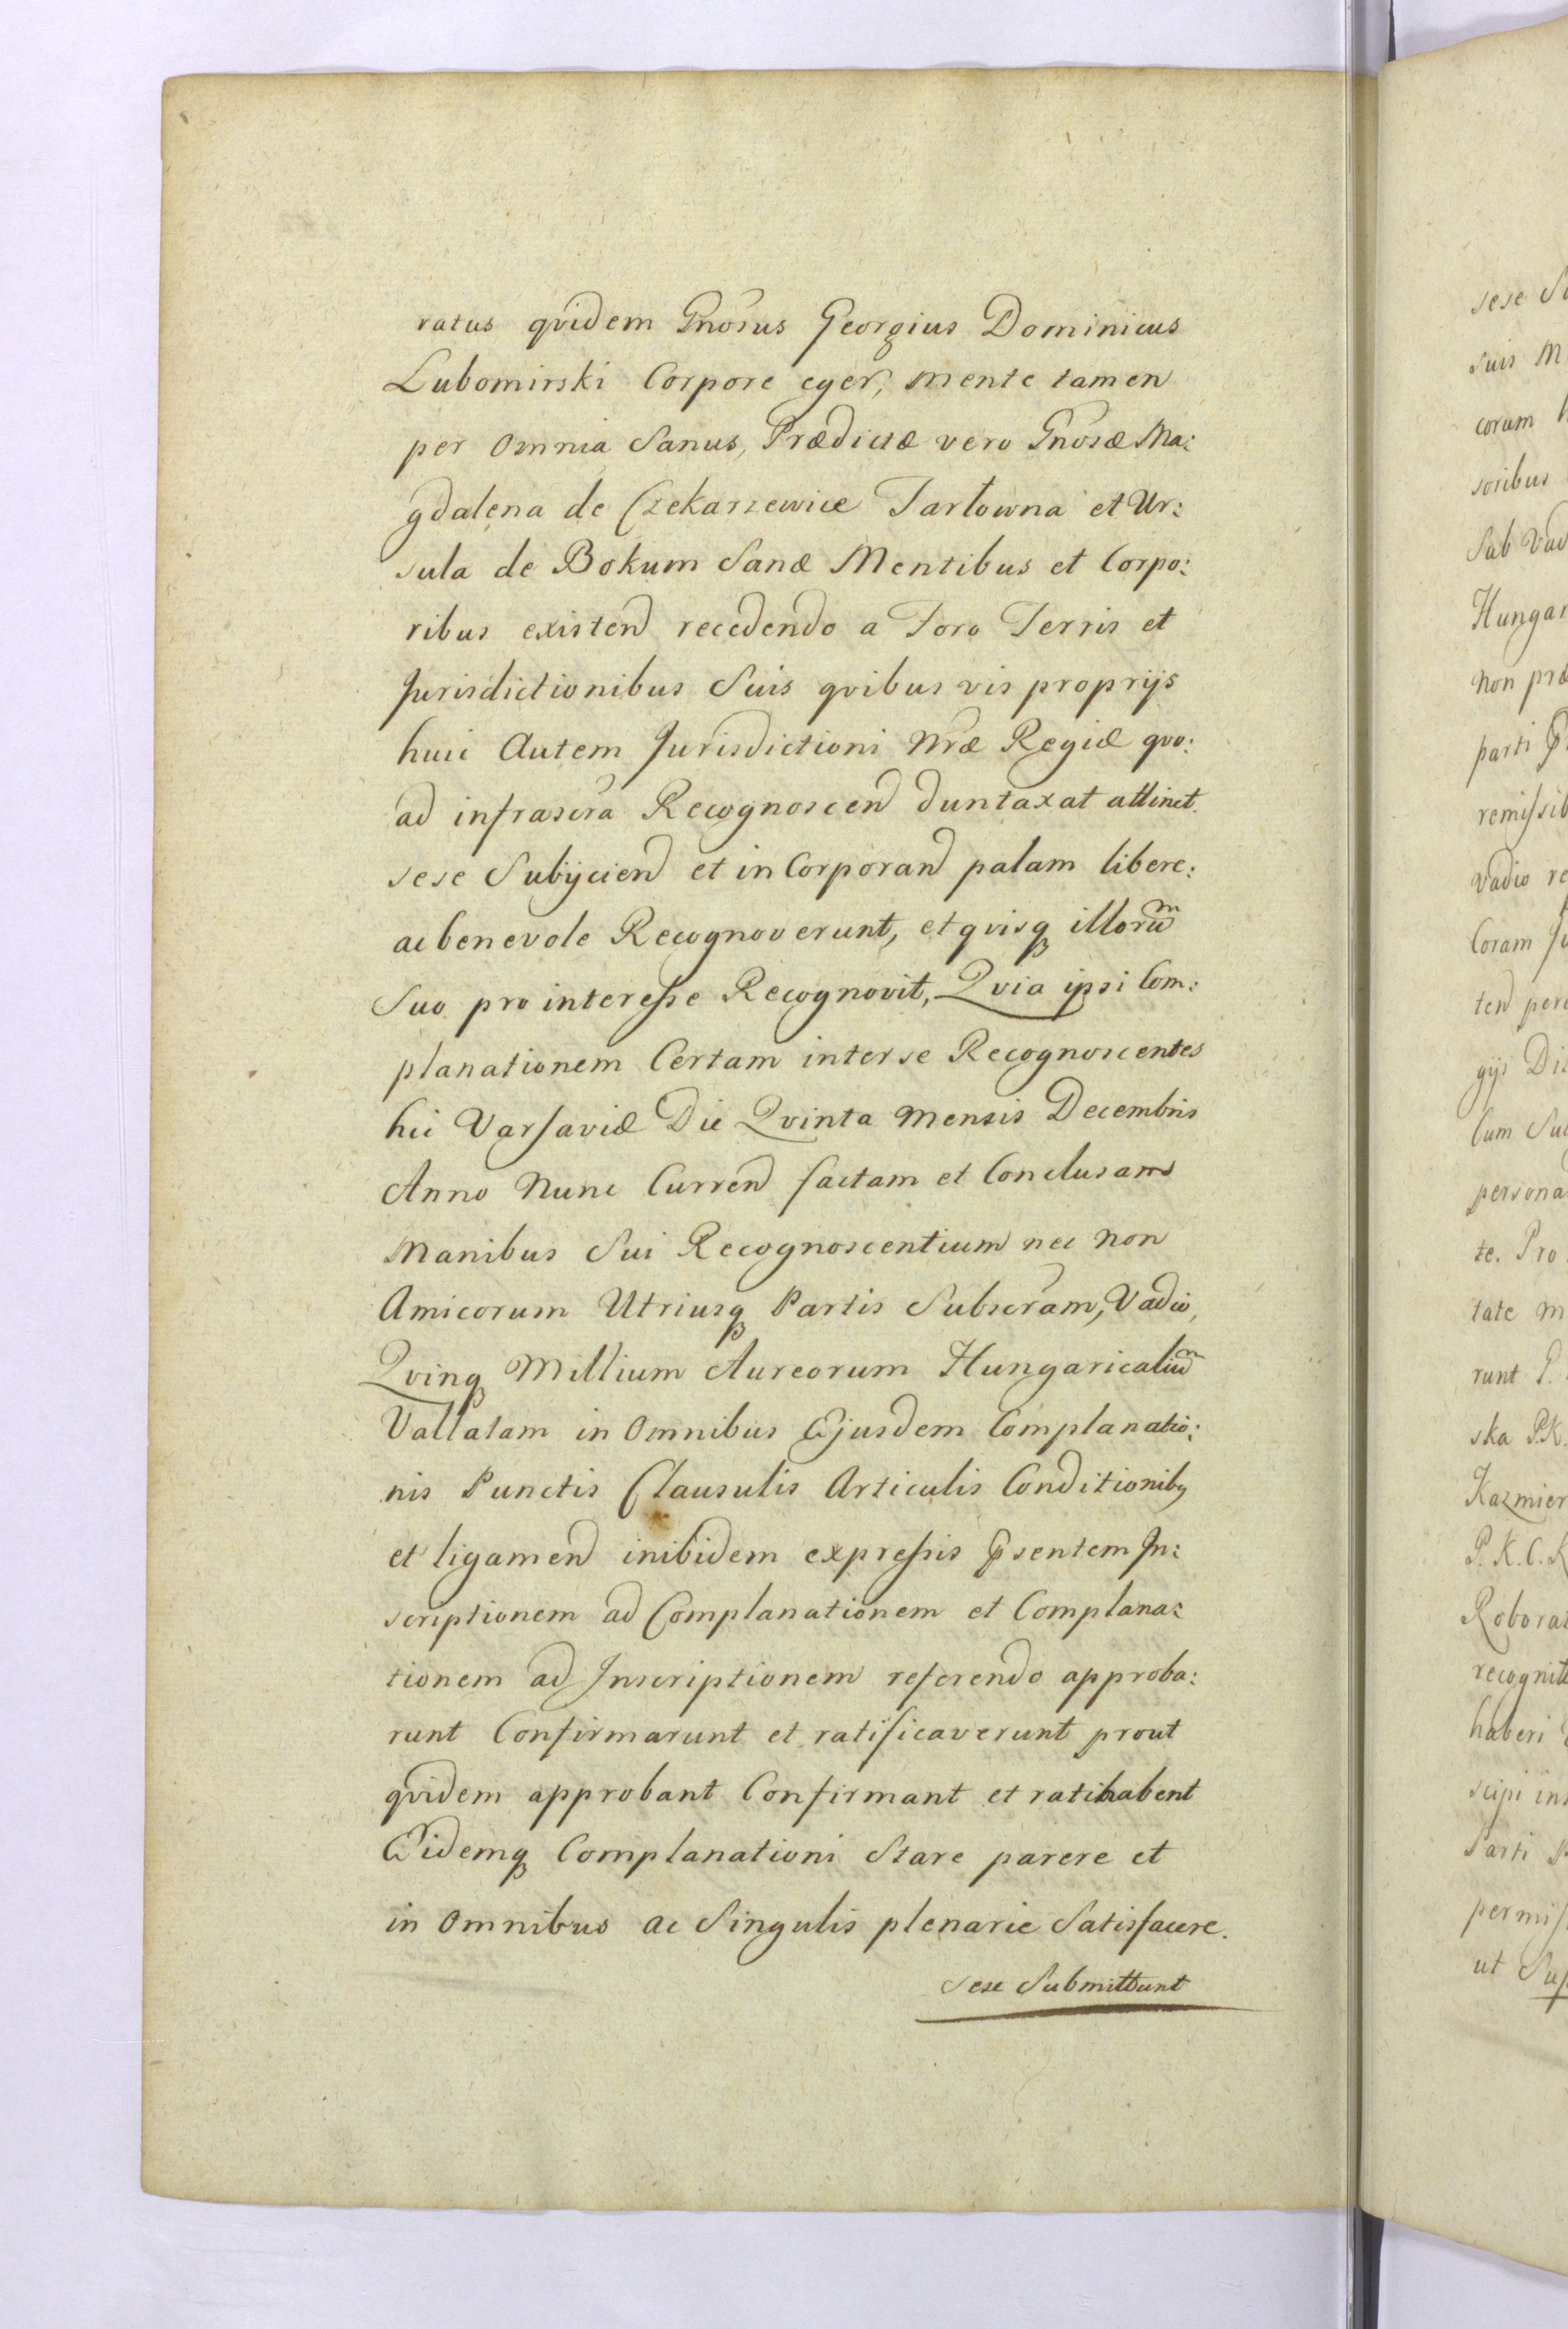 ratus qvidem Gnosus Georgius Dominicus
Lubomirski Corpore eger, mente tamen
per omnia Sanus, Prædictæ vero Gnosæ Ma:
gdalena de Czekarzewice Tarłowna et Ur:
sula de Bokum Sanæ Mentibus et Corpo:
ribus existend recedendo a Foro Terris et
Jurisdictionibus Suis qvibus vis proprijs
huic Autem Jurisdictioni Nræ Regiæ qvo:
ad infrascra Recognoscend duntaxat attinet
sese Subijciend et in Corporand palam libere:
ac benevole Recognoverunt, et qvisq illorum
Suo pro interesse Recognovit, Qvia ipsi Com:
planationem Certam inter se Recognoscentes
hic Varsaviæ Die Qvinta mensis Decembris
Anno Nunc Currend factam et Conclusam
Manibus Sui Recognoscentium nec non
Amicorum Utriusq Partis Subscram, Vadio,
Qvinq Millium Aureorum Hungaricalium
Vallatam in Omnibus Ejusdem Complanatio:
nis Punctis Clausulis Articulis Conditionibq
et ligamend inibidem expressis Psentem In:
scriptionem ad Complanationem et Complana:
tionem ad Inscriptionem referendo approba:
runt Confirmarunt et ratificaverunt prout
qvidem approbant Confirmant et ratihabent
Eidemq Complanationi Stare parere et
in Omnibus ac Singulis plenarie Satisfacere.
sese Submittunt
sese
suis M
corum
soribus
Sub Vad
Hungar
non præ
parti
remissib
Vadio re
Coram Ju
tend per
gijs Di
Cum Su
persona
te. Pro
tate m
runt
ska P.K.
Kazmier
P. K. C. K
Robora
recognit
haberi
in
Parti
permis
ut Su